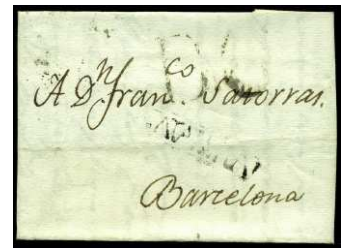 A Dn Franco. Satorras.
Barcelona